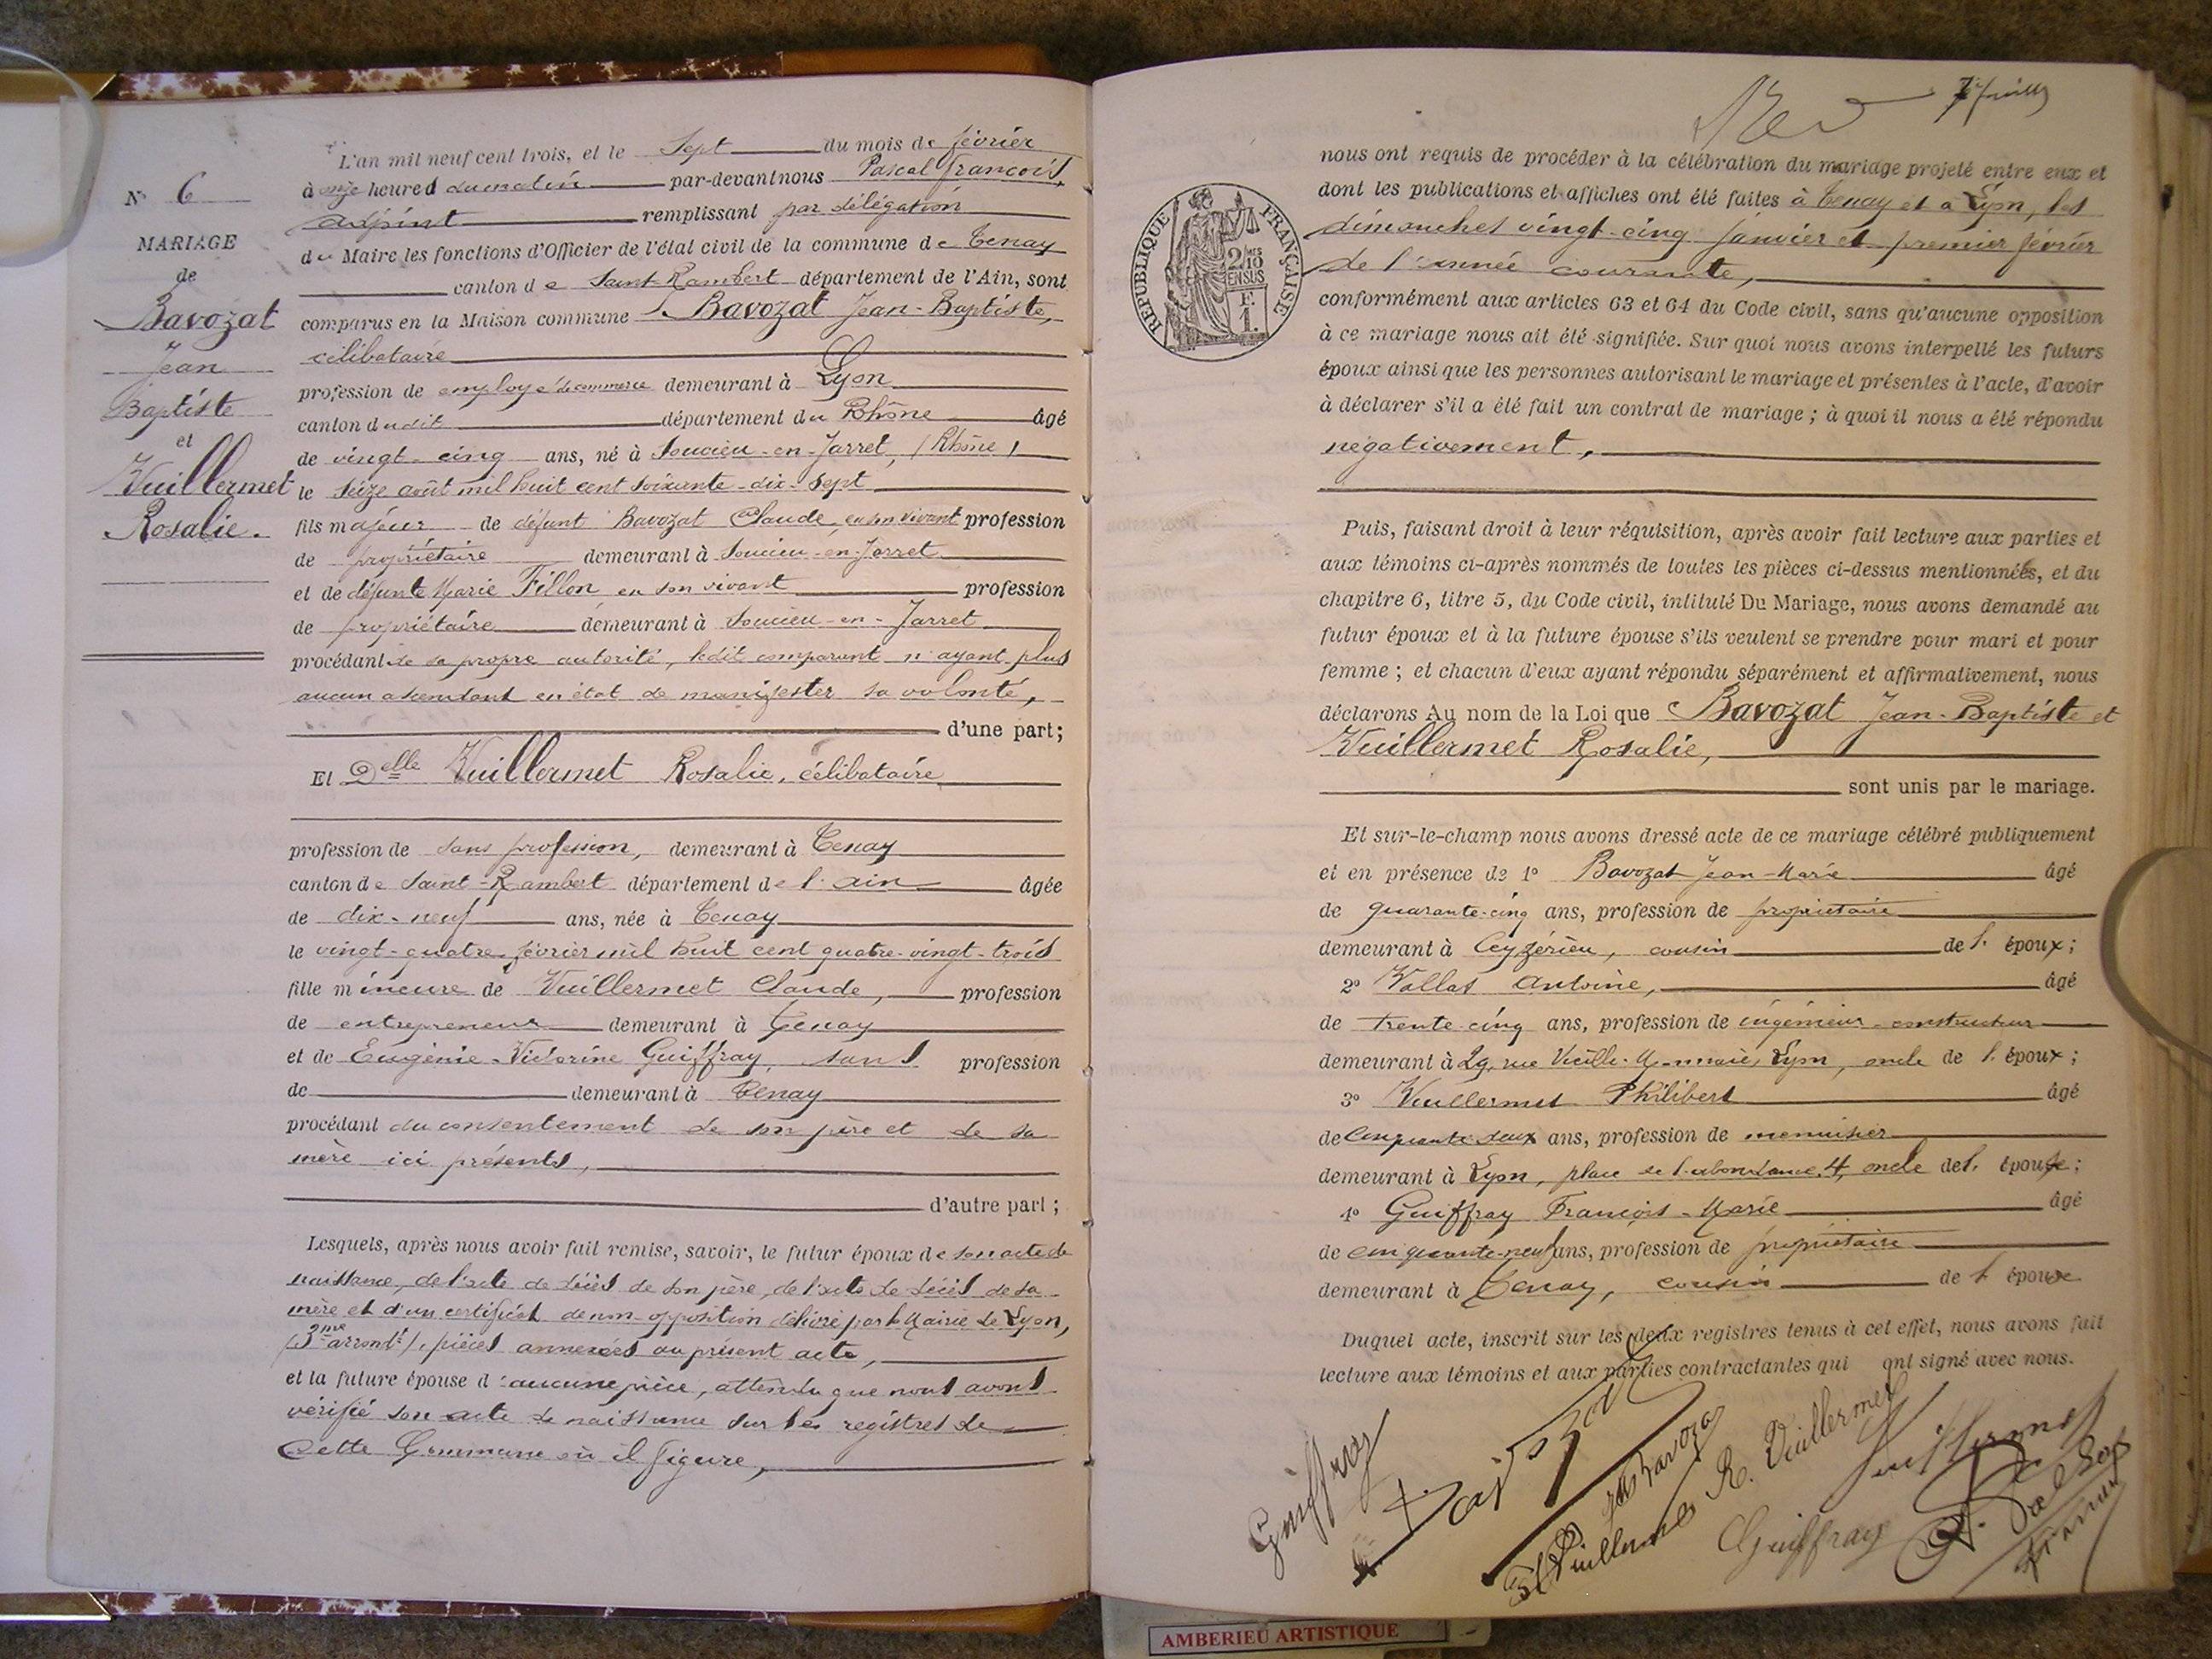 N° 6
MARIAGE
de
Bavozat
Jean
Baptiste
et
Vuillermet
Rosalie.
L'an mil neuf cent trois, et le Sept du mois de février
à onze heures du matin par-devant nous Pascal François,
adjoint remplissant par délégation
du Maire les fonctions d'Officier de l'état civil de la commune de Tenay
canton de Saint-Rambert département de l'Ain, sont
comparus en la Maison commune Bavozat Jean-Baptiste,
célibataire
profession de employé de commerce demeurant à Lyon
canton dudit département du Rhône âgé
de vingt-cinq ans, né à Soucieu-en-Jarret, (Rhône)
le seize août mil huit cent soixante-dix-sept
fils majeur de défunt Bavozat Claude, en son vivant profession
de propriétaire demeurant à Soucieu-en-Jarret
et de défunte Marie Fillon en son vivant profession
de propriétaire demeurant à Soucieu-en-Jarret
procédant de sa propre autorité, ledit comparant n'ayant plus
aucun ascendant en état de manifester sa volonté,
d'une part;
Et Delle Vuillermet Rosalie, célibataire
profession de sans profession, demeurant à Tenay
canton de Saint-Rambert département de l'ain âgée
de dix-neuf ans, née à Tenay
le vingt-quatre février mil huit cent quatre-vingt-trois
fille mineure de Vuillermet Claude, profession
de entrepreneur demeurant à Tenay
et de Eugénie-Victorine Guiffray, sans profession
de demeurant à Tenay
procédant du consentement de son père et de sa
mère ici présents,
d'autre part;
Lesquels, après nous avoir fait remise, savoir, le futur époux de son acte de
naissance, de l'acte de décès de son père, de l'acte de décès de sa
mère et d'un certificat de non-opposition délivré par la Mairie de Lyon,
(3me arrondt), pièces annexées au présent acte,
et la future épouse d'aucune pièce, attendu que nous avons
vérifié son acte de naissance sur les registres de
cette Commune où il figure,
7e feuillet
RÉPUBLIQUE FRANÇAISE
2/10
EN SUS
F.
1.
nous ont requis de procéder à la célébration du mariage projeté entre eux et
dont les publications et affiches ont été faites à Tenay et à Lyon, les
dimanches vingt-cinq janvier et premier février
de l'année courante,
conformément aux articles 63 et 64 du Code civil, sans qu'aucune opposition
à ce mariage nous ait été signifiée. Sur quoi nous avons interpellé les futurs
époux ainsi que les personnes autorisant le mariage et présentes à l'acte, d'avoir
à déclarer s'il a été fait un contrat de mariage ; à quoi il nous a été répondu
négativement,
Puis, faisant droit à leur réquisition, après avoir fait lecture aux parties et
aux témoins ci-après nommés de toutes les pièces ci-dessus mentionnées, et du
chapitre 6, titre 5, du Code civil, intitulé Du Mariage, nous avons demandé au
futur époux et à la future épouse s'ils veulent se prendre pour mari et pour
femme ; et chacun d'eux ayant répondu séparément et affirmativement, nous
déclarons Au nom de la Loi que Bavozat Jean-Baptiste et
Vuillermet Rosalie,
sont unis par le mariage.
Et sur-le-champ nous avons dressé acte de ce mariage célébré publiquement
et en présence de 1° Bavozat Jean-Marie âgé
de quarante-cinq ans, profession de propriétaire
demeurant à Ceyzérieu, cousin de l' époux;
2° Vallas Antoine, âgé
de trente-cinq ans, profession de ingénieur-constructeur
demeurant à 29, rue Vieille-Monnaie, Lyon, oncle de l' époux;
3° Vuillermet Philibert âgé
de Cinquante deux ans, profession de menuisier
demeurant à Lyon, place de l'abondance, 4, oncle de l' épouse;
4° Guiffray François-Marie âgé
de cinquante-neuf ans, profession de propriétaire
demeurant à Tenay, cousin de l' épouse
Duquel acte, inscrit sur les deux registres tenus à cet effet, nous avons fait
lecture aux témoins et aux parties contractantes qui ont signé avec nous.
Guiffray
Bavozat
Vuillermet
R. Vuillermet
Guiffray
Vuillermet
AMBERIEU ARTISTIQUE